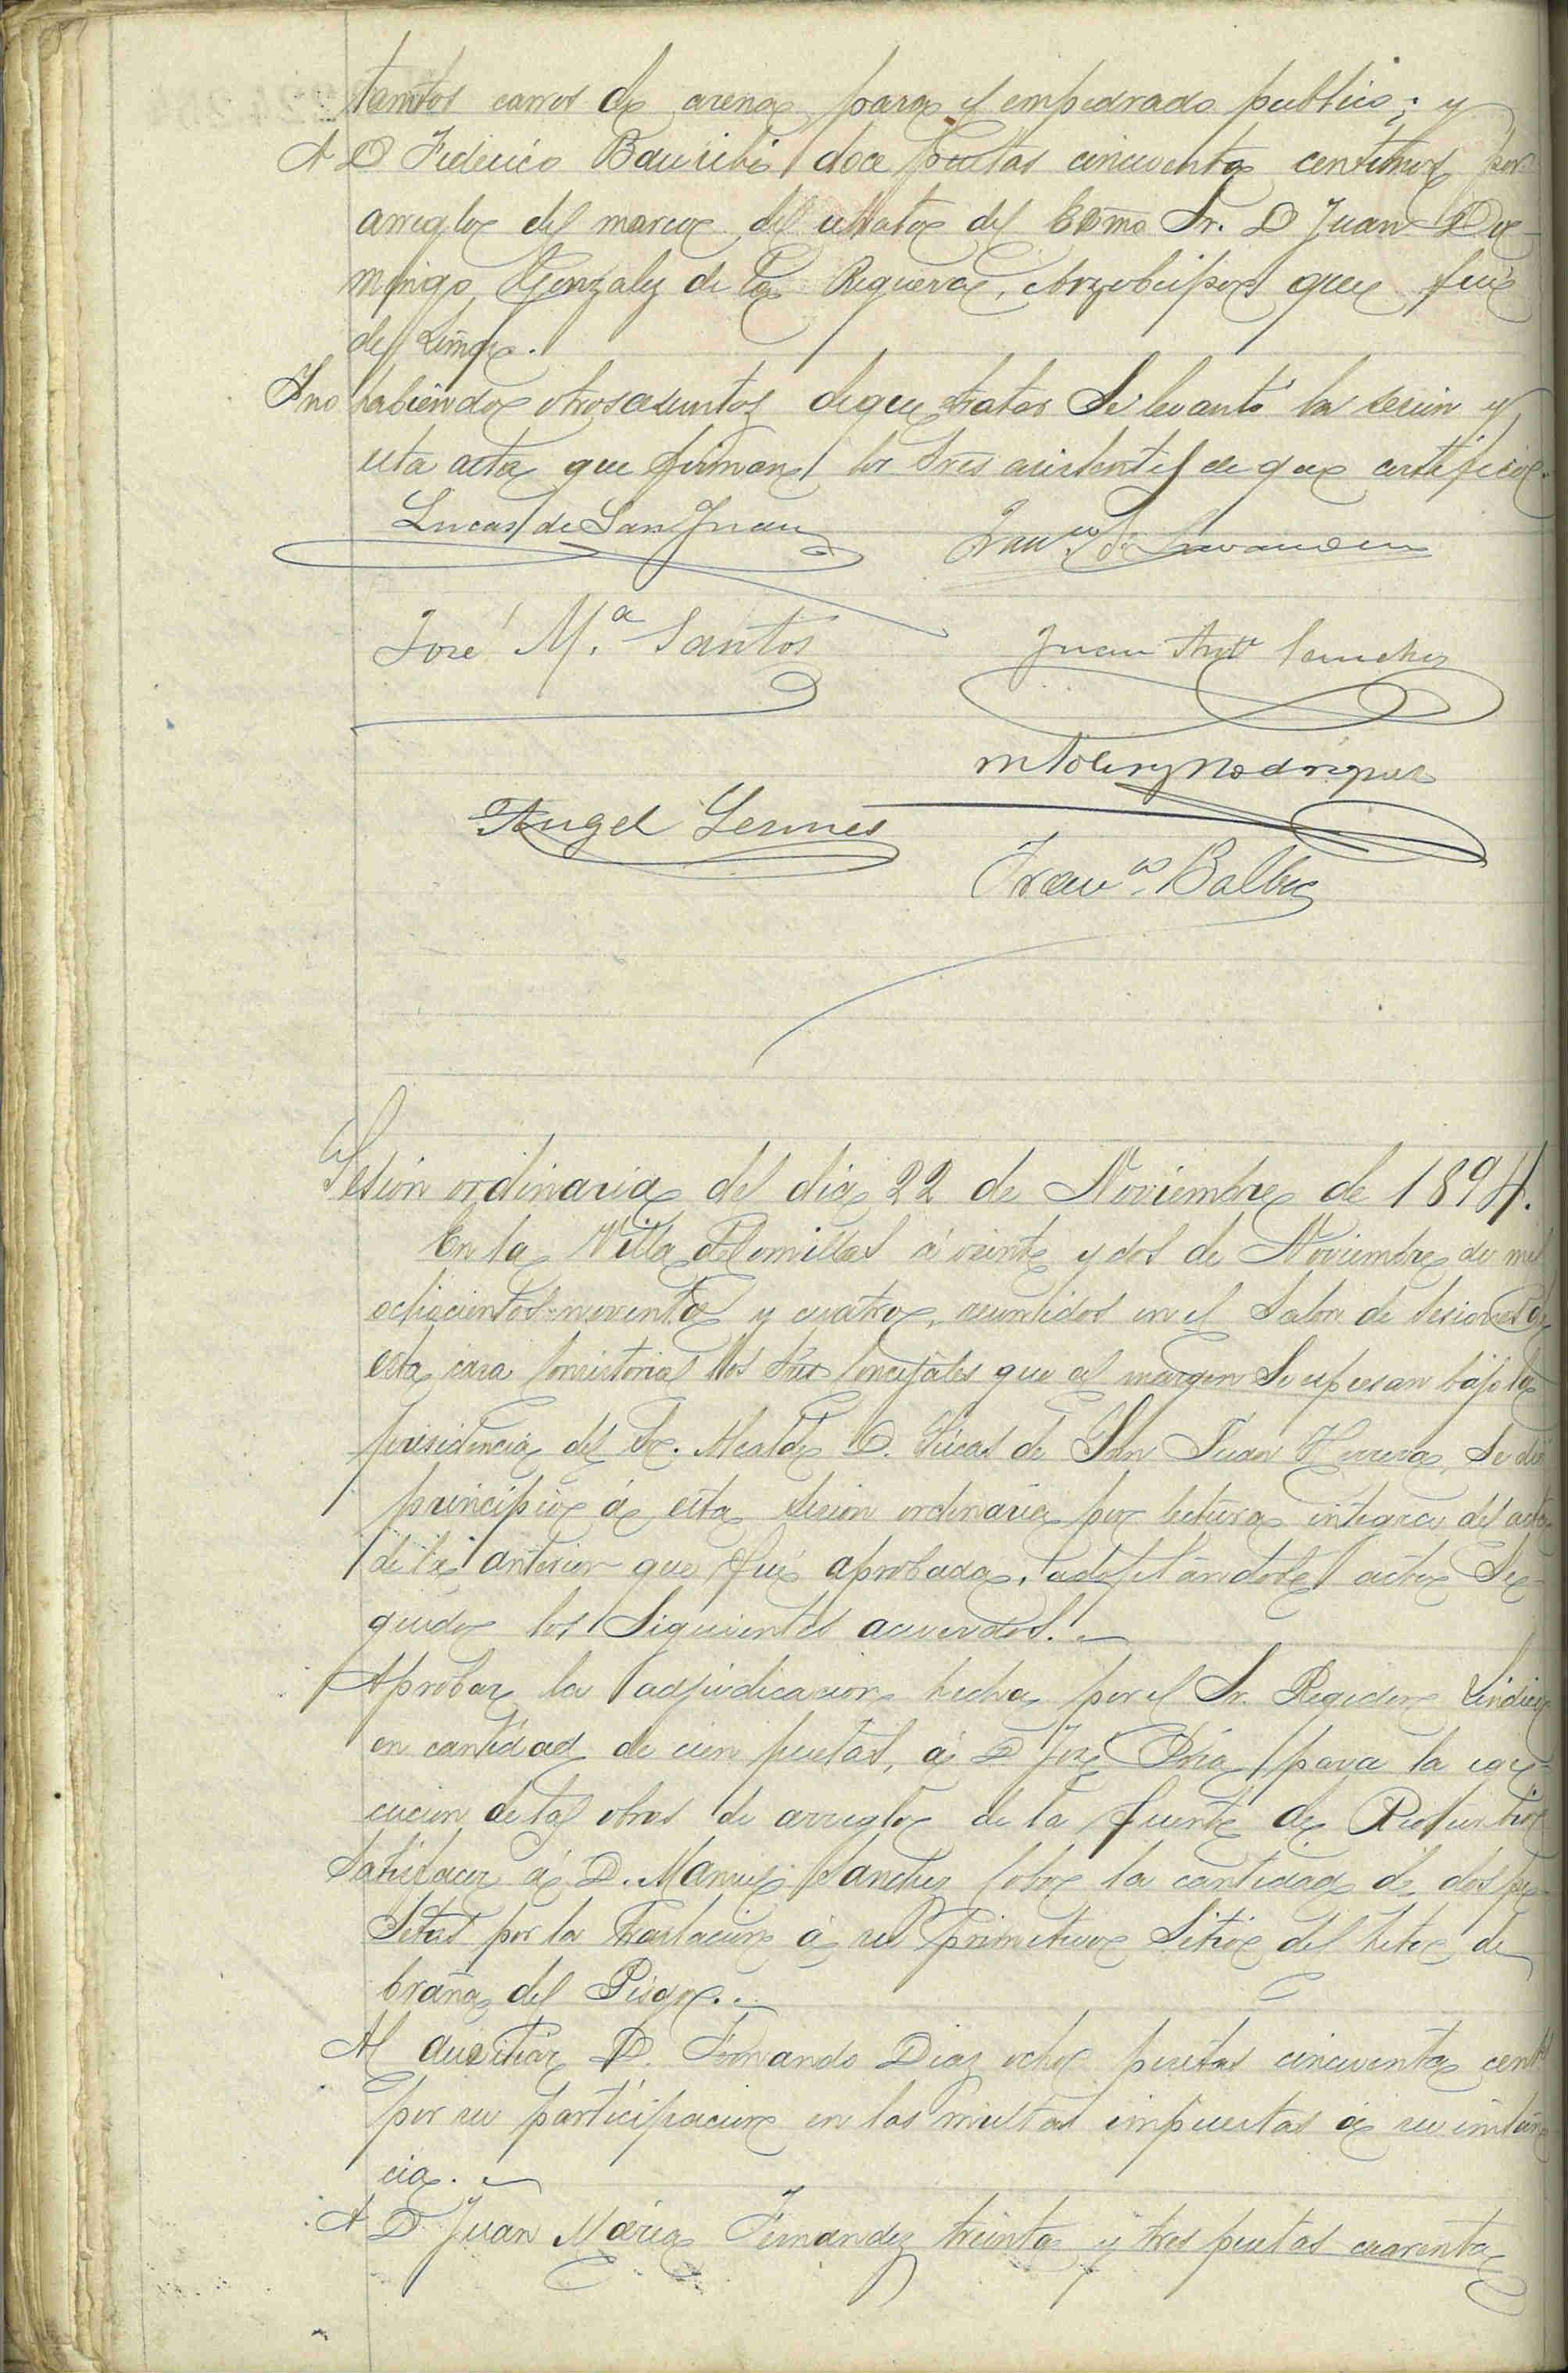 tantos carros de arena para el empedrado publico; y
A D Federico Bauribi doce pesetas cincuenta centimos por
arreglo del marco del retrato del Ecsmo Sr. D Juan Do-
mingo Gonzalez de la Reguera, Arzobispo que fué
de Lima.
Y no habiendo otros asuntos de que tratar Se levantó la sesion y
esta acta que firman los Sres asistentes de que certifico.
Lucas de San Juan
Franco de
José M.a Santos
Juan Anto Sanchez
Rodriguez
Angel
Franco. Balbas
Sesión ordinaria del dia 22 de Noviembre de 1894.
En la Villa de Comillas á veinte y dos de Noviembre de mil
ochocientos noventa y cuatro, reunidos en el Salon de Sesiones de
esta casa Consistorial los Sres Concejales que al margen Se espresan bajo la
presidencia del Sr. Alcalde D. Lúcas de San Juan Herrera, Se dió
principio á esta sesion ordinaria por lectura integra del acta
de la anterior que fué aprobada, adoptándose acto Se-
guido los Siguientes acuerdos.
Aprobar la adjudicacion hecha por el Sr. Regidor Sindico
en cantidad de cien pesetas, á D José Oria para la eje-
cucion de las obras de arreglo de la fuente de
Satisfacer á D. Manuel Sanchez Cobo la cantidad de dos pe-
Setas por la traslacion á su primitivo Sitio del hito de
braña del Pisgo.
Al auxiliar D. Fernando Diaz ocho pesetas cincuenta cents
por su participacion en las multas impuestas á su instan-
cia.
A D Juan Maria Fernandez treinta y tres pesetas cuarenta